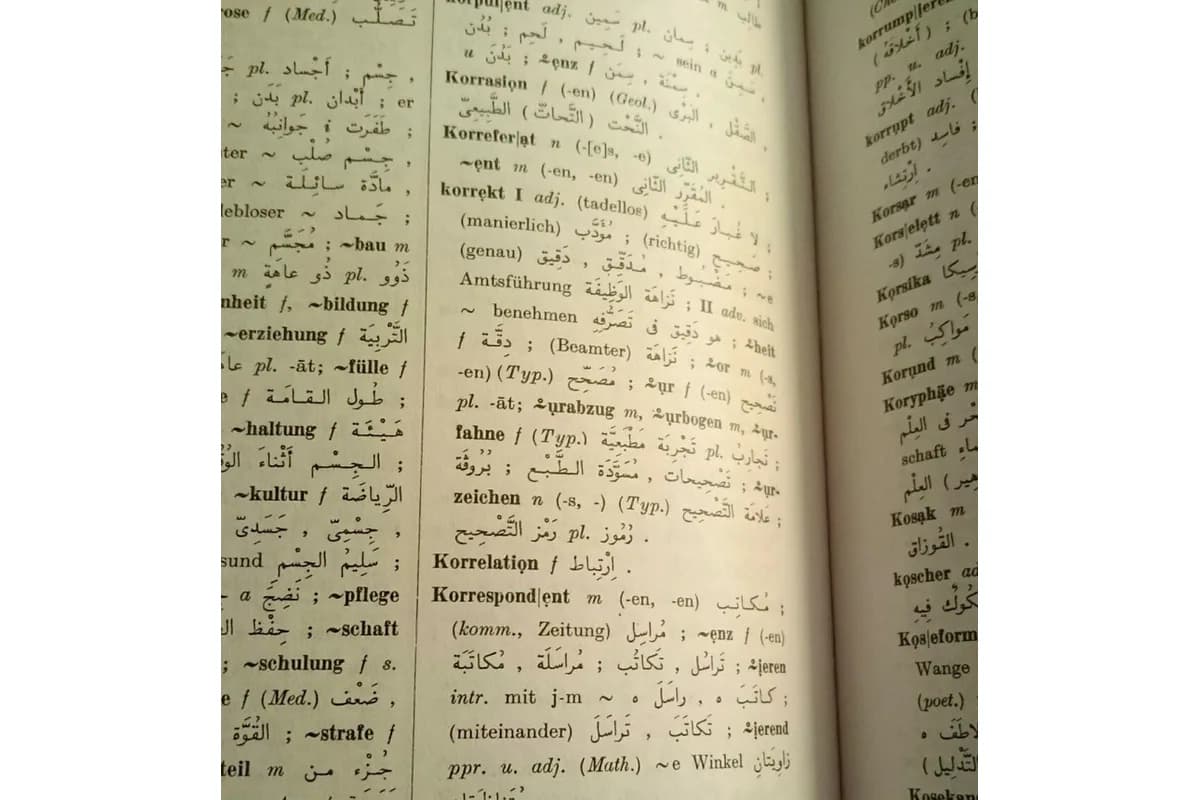 rose f (Med.) تَصَلُّب
جِسْم pl. أَجْساد ;
بَدَن pl. أَبْدان ; er
~ طَفَرَت جَوانِبُهُ ;
ter ~ جِسْم صُلْب ,
er ~ مادَّة سائِلَة ,
lebloser ~ جَماد ;
r ~ مُجَسَّم ; ~bau m
m ذُو عاهَةٍ pl. ذَوُو
nheit f, ~bildung f
~erziehung f التَّرْبِيَة
pl. -āt; ~fülle f
f طُول القامَة ;
~haltung f هَيْئَة
الجِسْم أَثْناءَ ;
~kultur f الرِّياضَة
جِسْمِىّ , جَسَدِىّ ,
sund سَلِيمُ الجِسْم ;
a نَضِجَ ; ~pflege
حِفْظ ; ~schaft
; ~schulung f s.
e f (Med.) ضَعْف ,
القُوَّة ; ~strafe f
teil m جُزْء من
korpul|ent adj. سَمِين pl. سِمان ; بَدِين pl.
بُدُن ; لَحِيم , لَحِم ; ~ sein a سَمِنَ ,
u بَدُنَ ; ⁓ẹnz f سِمْنَة , سِمَن .
Korrasiọn f (-en) (Geol.) البَرْى , الصَّقْل ,
النَّحْت ( التَّحاتّ ) الطَّبِيعِىّ .
Korrefer|ạt n (-[e]s, -e) التَّقْرِير الثَّانِى ;
~ẹnt m (-en, -en) المُقَرِّر الثَّانِى .
korrẹkt I adj. (tadellos) لا غُبارَ عَلَيْهِ ;
(manierlich) مُؤَدَّب ; (richtig) صَحِيح ;
(genau) مَضْبُوط , مُدَقِّق , دَقِيق ; ~e
Amtsführung نَزاهَة الوَظِيفَة ; II adv. sich
~ benehmen هو دَقِيق فى تَصَرُّفِهِ ; ⁓heit
f دِقَّة ; (Beamter) نَزاهَة ; ⁓or m (-s,
-en) (Typ.) مُصَحِّح ; ⁓ụr f (-en) تَصْحِيح
pl. -āt; ⁓ụrabzug m, ⁓ụrbogen m, ⁓ụr-
fahne f (Typ.) تَجْرِبَة مَطْبَعِيَّة pl. تَجارِبُ ;
تَصْحِيحات , مُسَوَّدَة الطَّبْع ; بُرُوفَة ; ⁓ụr-
zeichen n (-s, -) (Typ.) عَلامَة التَّصْحِيح ;
رَمْز التَّصْحِيح pl. رُمُوز .
Korrelatiọn f اِرْتِباط .
Korrespond|ẹnt m (-en, -en) مُكاتِب ;
(komm., Zeitung) مُراسِل ; ~ẹnz f (-en)
تَراسُل , تَكاتُب ; مُراسَلَة , مُكاتَبَة ; ⁓ieren
intr. mit j-m ~ كاتَبَ ه , راسَلَ ه ;
(miteinander) تَكاتَبَ , تَراسَلَ ; ⁓ierend
ppr. u. adj. (Math.) ~e Winkel زاوِيَتانِ
korrump|ieren
( أَخْلاقَهُ ) ;
pp. u. adj.
إِفْساد الأَخْلاق
korrupt adj. (
derbt) فاسِد ;
اِرْتِشاء .
Korsạr m (-en
Kors|elẹtt n (
-s) مِشَدّ pl.
Kọrsika
Kọrso m (-s
pl. مَواكِبُ
Korụnd m (
Koryphäe m
فى العِلْم
schaft
العِلْم (
Kosạk m
القُوزاق .
kọscher ad
فِيهِ
Kọs|eform
Wange
(poet.)
لاطَفَ ه
التَّدْلِيل )
Kosekan